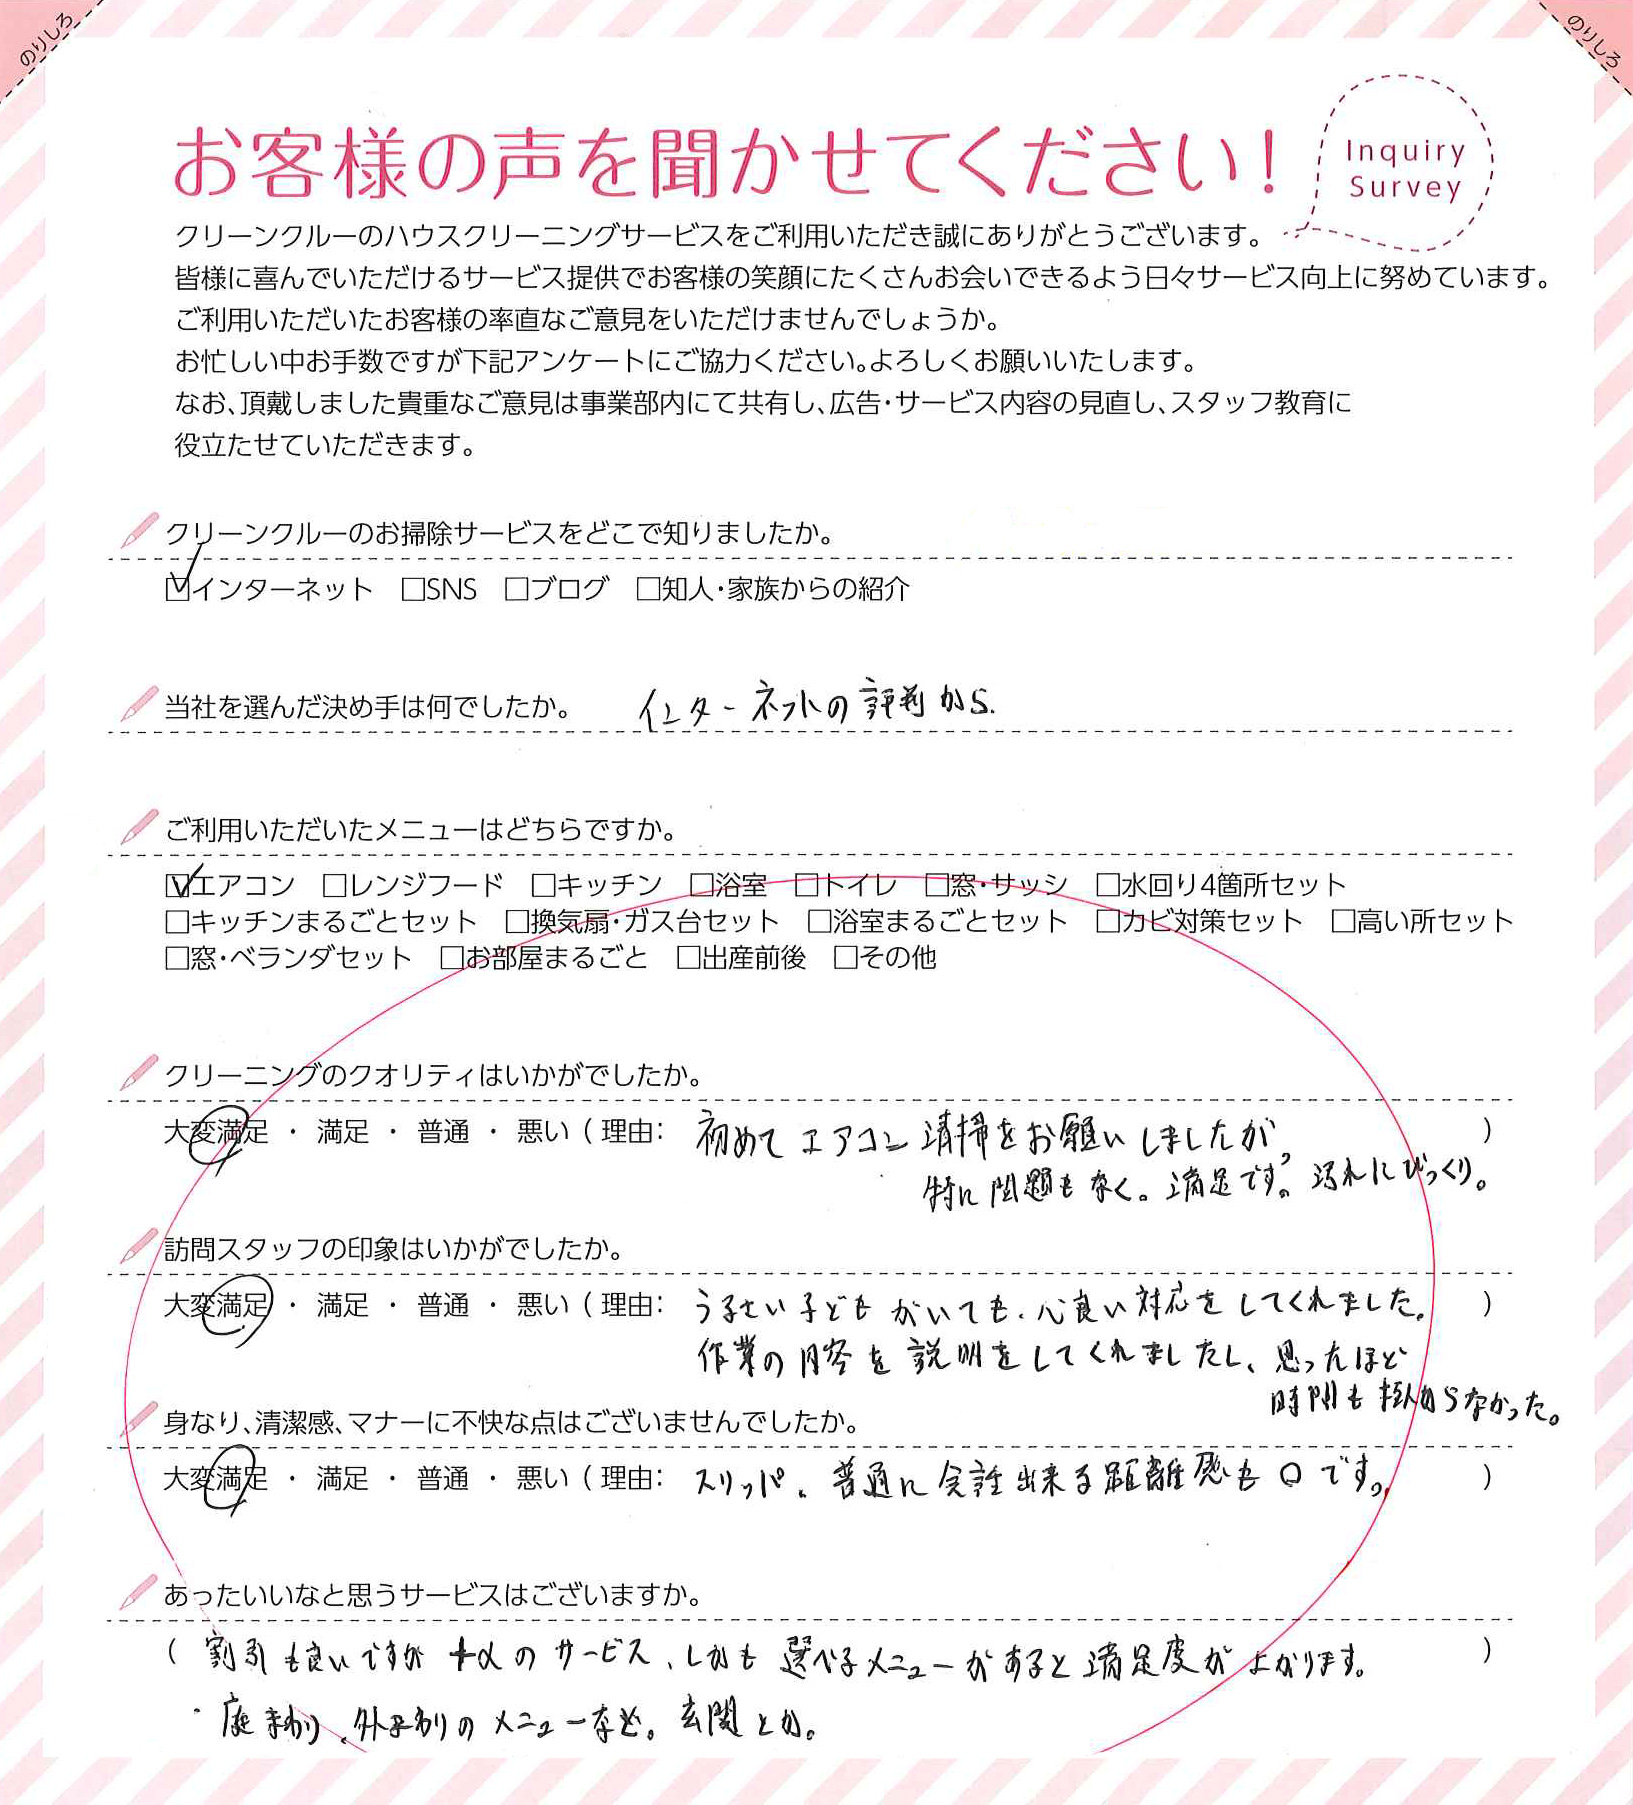 のりしろ
のりしろ
お客様の声を聞かせてください!
Inquiry
Survey
クリーンクルーのハウスクリーニングサービスをご利用いただき誠にありがとうございます。
皆様に喜んでいただけるサービス提供でお客様の笑顔にたくさんお会いできるよう日々サービス向上に努めています。
ご利用いただいたお客様の率直なご意見をいただけませんでしょうか。
お忙しい中お手数ですが下記アンケートにご協力ください。よろしくお願いいたします。
なお、頂戴しました貴重なご意見は事業部内にて共有し、広告・サービス内容の見直し、スタッフ教育に
役立たせていただきます。
クリーンクルーのお掃除サービスをどこで知りましたか。
☑インターネット □SNS □ブログ □知人・家族からの紹介
当社を選んだ決め手は何でしたか。 インターネットの評判から.
ご利用いただいたメニューはどちらですか。
☑エアコン □レンジフード □キッチン □浴室 □トイレ □窓・サッシ □水回り4箇所セット
□キッチンまるごとセット □換気扇・ガス台セット □浴室まるごとセット □カビ対策セット □高い所セット
□窓・ベランダセット □お部屋まるごと □出産前後 □その他
クリーニングのクオリティはいかがでしたか。
大変満足 ・ 満足 ・ 普通 ・ 悪い ( 理由: 初めてエアコン清掃をお願いしましたが、 )
特に問題もなく。満足です。汚れにびっくり。
訪問スタッフの印象はいかがでしたか。
大変満足 ・ 満足 ・ 普通 ・ 悪い ( 理由: うるさい子どもがいても、心良い対応をしてくれました。 )
作業の内容を説明をしてくれましたし、思ったほど
時間も掛からなかった。
身なり、清潔感、マナーに不快な点はございませんでしたか。
大変満足 ・ 満足 ・ 普通 ・ 悪い ( 理由: スリッパ、普通に会話出来る距離感も○です。 )
あったいいなと思うサービスはございますか。
( 割引も良いですが +αのサービス、しかも 選べるメニューがあると満足度が上がります。 )
・庭まわり、外まわりのメニューなど。玄関とか。